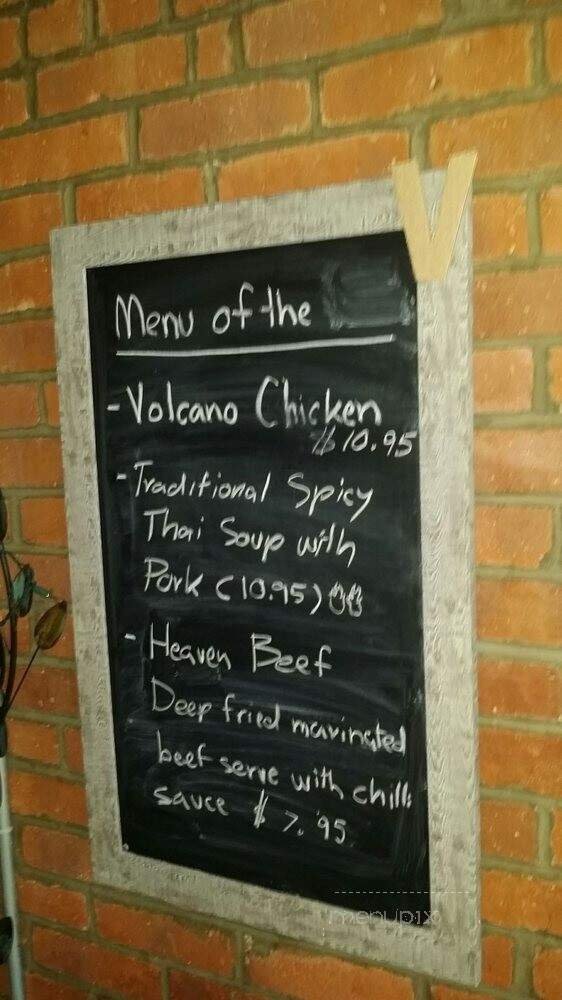 V
Menu of the
- Volcano Chicken
$10.95
- Traditional Spicy
Thai Soup with
Pork (10.95)
- Heaven Beef
Deep fried marinated
beef serve with chilli
sauce $ 7.95
menupix